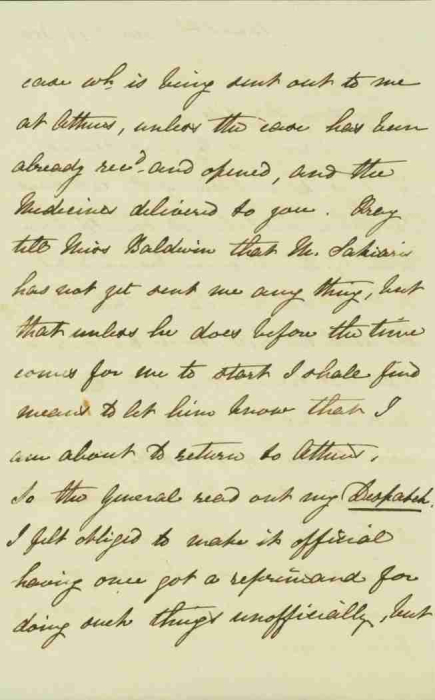 case wh. is being sent out to me
at Athens, unless the case has been
already recd. and opened, and the
Medicines delivered to you. Pray
tell Miss Baldwin that M. Sakiaris
has not yet sent me any thing, but
that unless he does before the time
comes for me to start I shall find
means to let him know that I
am about to return to Athens.
So the General read out my Despatch.
I felt obliged to make it official
having once got a reprimand for
doing such things unofficially, but